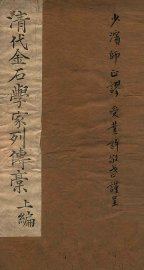 清代金石學家列傳稾 上編
少濱師正謬 受業許敬武謹呈